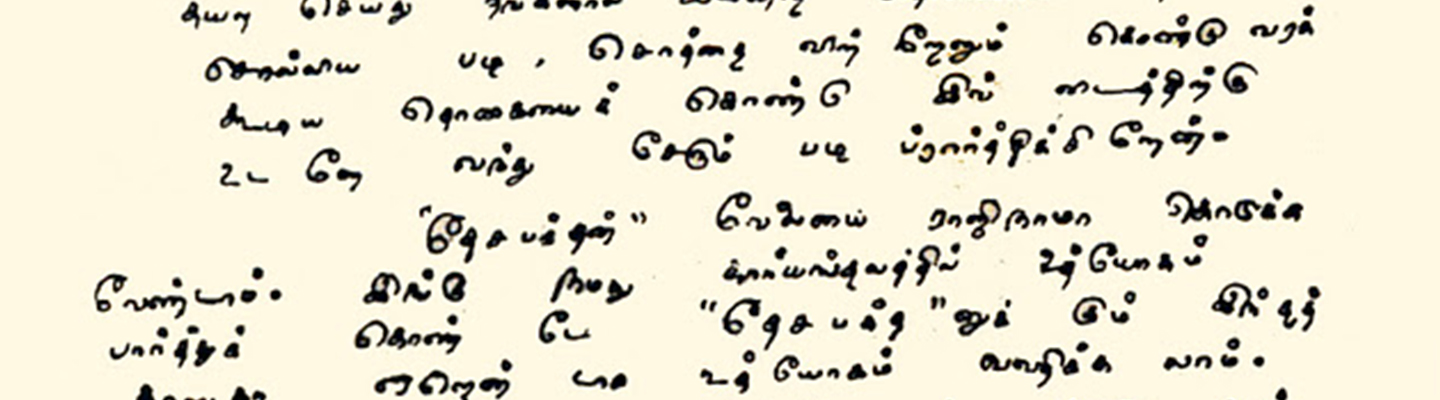 தயவு செய்து
சொல்லிய படி, சொத்தை விற் றேனும் கொண்டு வரக்
கூடிய தொகையைக் கொண்டு இவ் டைத்திற்கு
உட னே வந்து சேரும் படி ப்ரார்த்திக்கி றேன்.
"தேச பக்தன்" வேலையை ராஜிநாமா கொடுக்க
வேண்டாம். இங்கு நமது கார்யாலயத்தில் உத்யோகம்
பார்த்துக் கொண் டே "தேச பக்த"னுக் கும் இந்தத்
உத் யோகம் வஹிக்க லாம்.